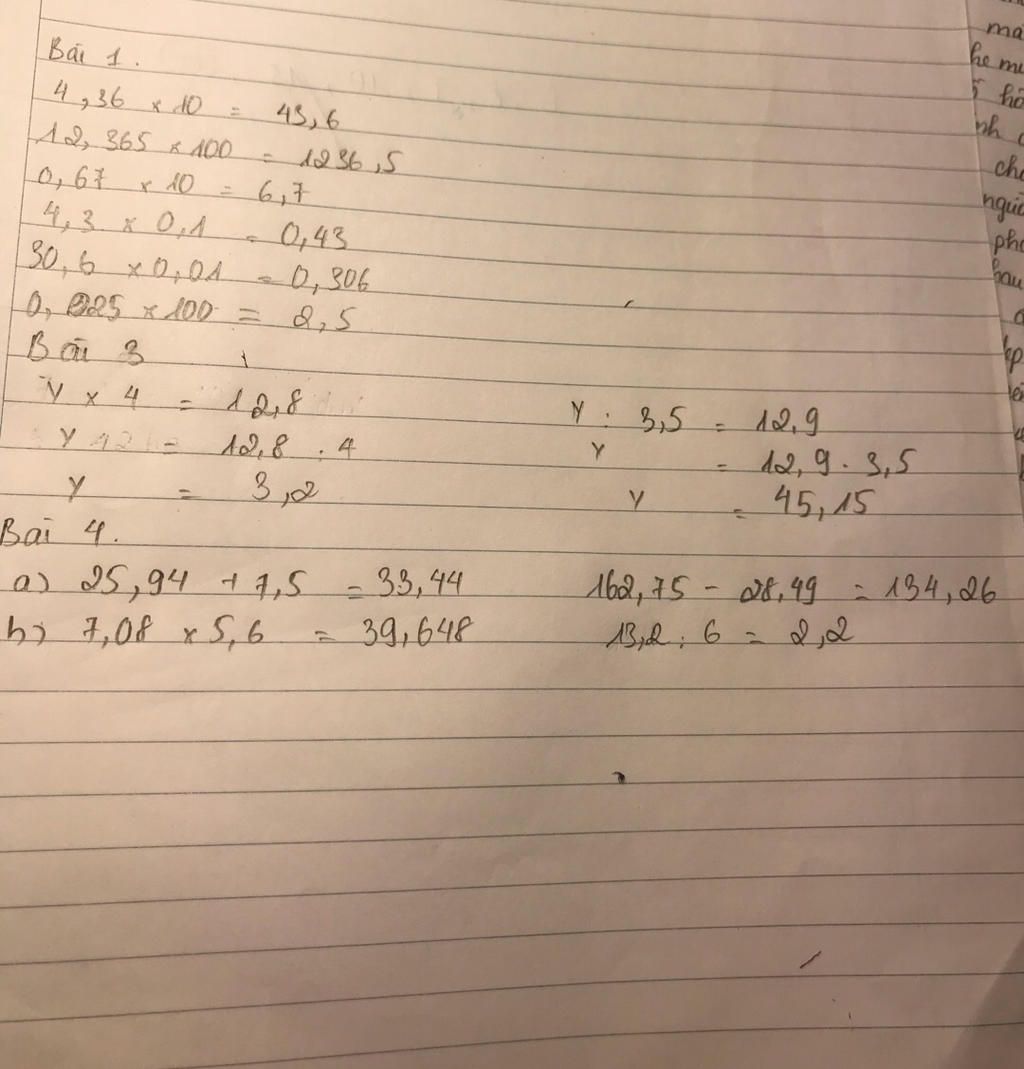 Bài 1.
4,36 x 10 = 43,6
12,365 x 100 = 1236,5
0,67 x 10 = 6,7
4,3 x 0,1 = 0,43
30,6 x 0,01 = 0,306
0,025 x 100 = 2,5
Bài 3
Y x 4 = 12,8
Y = 12,8 : 4
Y = 3,2
Y : 3,5 = 12,9
Y = 12,9 . 3,5
Y = 45,15
Bài 4.
a) 25,94 + 7,5 = 33,44 162,75 - 28,49 = 134,26
b) 7,08 x 5,6 = 39,648 13,2 : 6 = 2,2
ma
he
hau